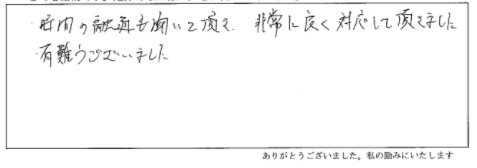 ・時間の融通も効いて頂き、非常に良く対応して頂きました
・有難うございました
ありがとうございました。私の励みにいたします